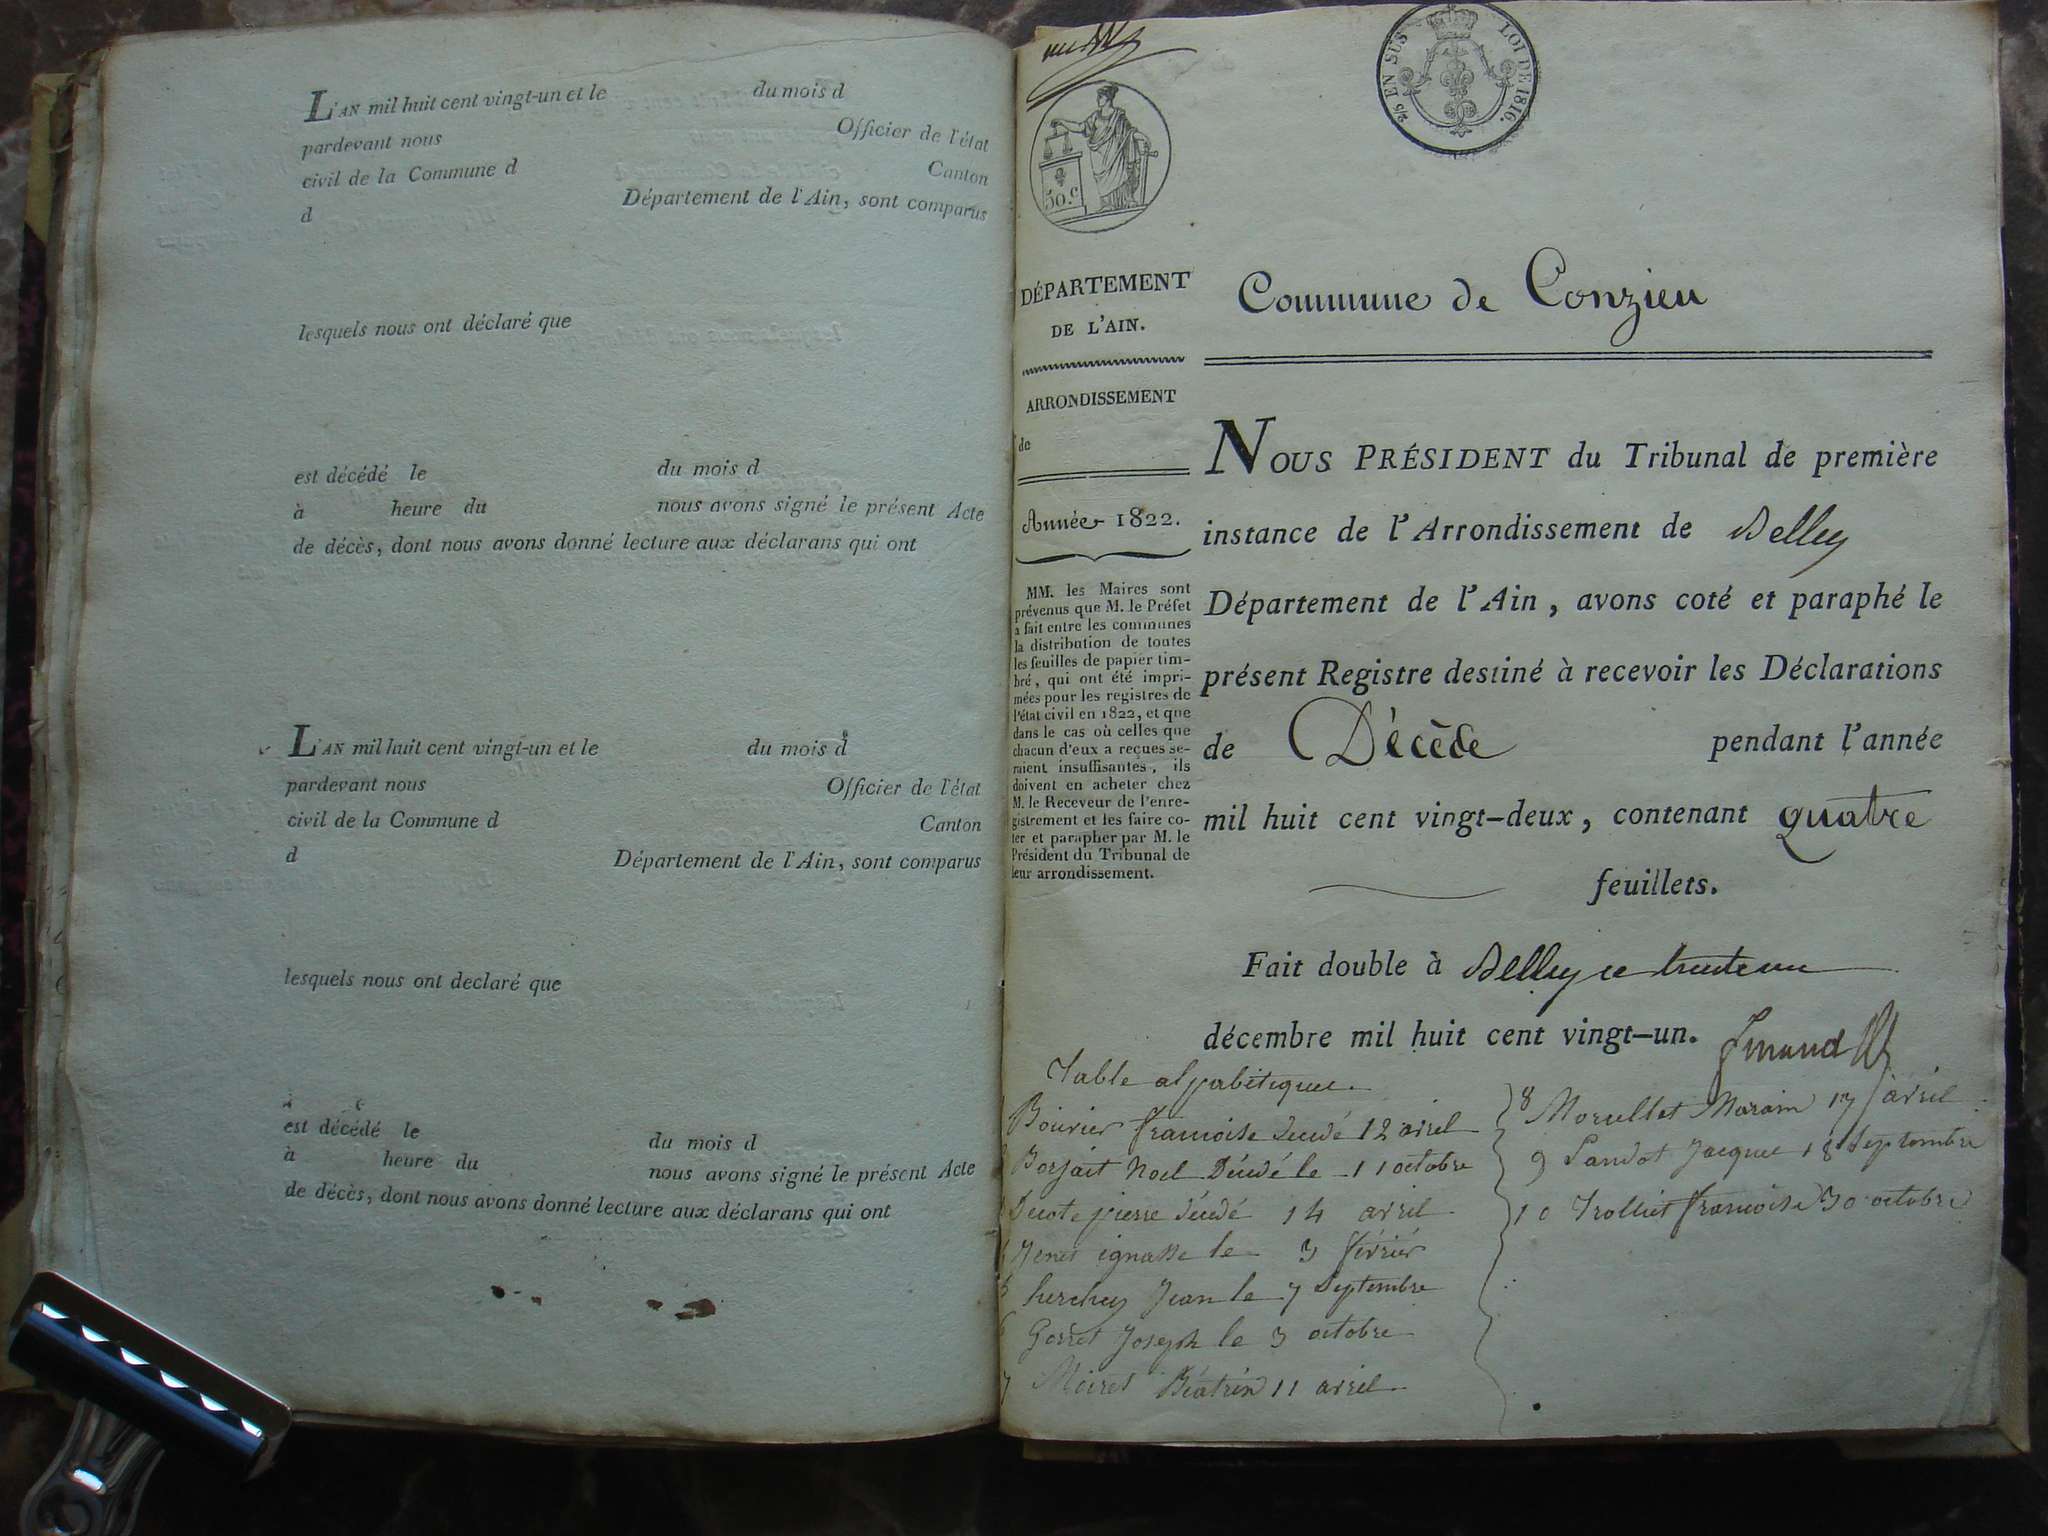 L'AN mil huit cent vingt-un et le du mois d
pardevant nous Officier de l'état
civil de la Commune d Canton
d Département de l'Ain, sont comparus
lesquels nous ont déclaré que
est décédé le du mois d
à heure du nous avons signé le présent Acte
de décès, dont nous avons donné lecture aux déclarans qui ont
L'AN mil huit cent vingt-un et le du mois d
pardevant nous Officier de l'état
civil de la Commune d Canton
d Département de l'Ain, sont comparus
lesquels nous ont declaré que
est décédé le du mois d
à heure du nous avons signé le présent Acte
de décès, dont nous avons donné lecture aux déclarans qui ont
2/5 EN SUS LOI DE 1816.
50.c
DÉPARTEMENT
DE L'AIN.
ARRONDISSEMENT
de
Année 1822.
MM. les Maires sont
prévenus que M. le Préfet
a fait entre les communes
la distribution de toutes
les feuilles de papier tim-
bré, qui ont été impri-
mées pour les registres de
l'état civil en 1822, et que
dans le cas où celles que
chacun d'eux a reçues se-
raient insuffisantes, ils
doivent en acheter chez
M. le Receveur de l'enre-
gistrement et les faire co-
ter et parapher par M. le
Président du Tribunal de
leur arrondissement.
Commune de Conzieu
NOUS PRÉSIDENT du Tribunal de première
instance de l'Arrondissement de Belley
Département de l'Ain, avons coté et paraphé le
présent Registre destiné à recevoir les Déclarations
de Décède pendant l'année
mil huit cent vingt-deux, contenant quatre
feuillets.
Fait double à Belley ce trente un
décembre mil huit cent vingt-un.
Table alpabétique
Bouvier francoise décédé 12 avril
Borjait Noel Décédé le 11 octobre
pierre décédé 14 avril
ignasse le 3 février
Jean le 7 Septembre
Gorret Joseph le 3 octobre
7 Béatrix 11 avril
8 17 avril
9 Jacque 18 Septembre
10 Trolliet francoise 30 octobre